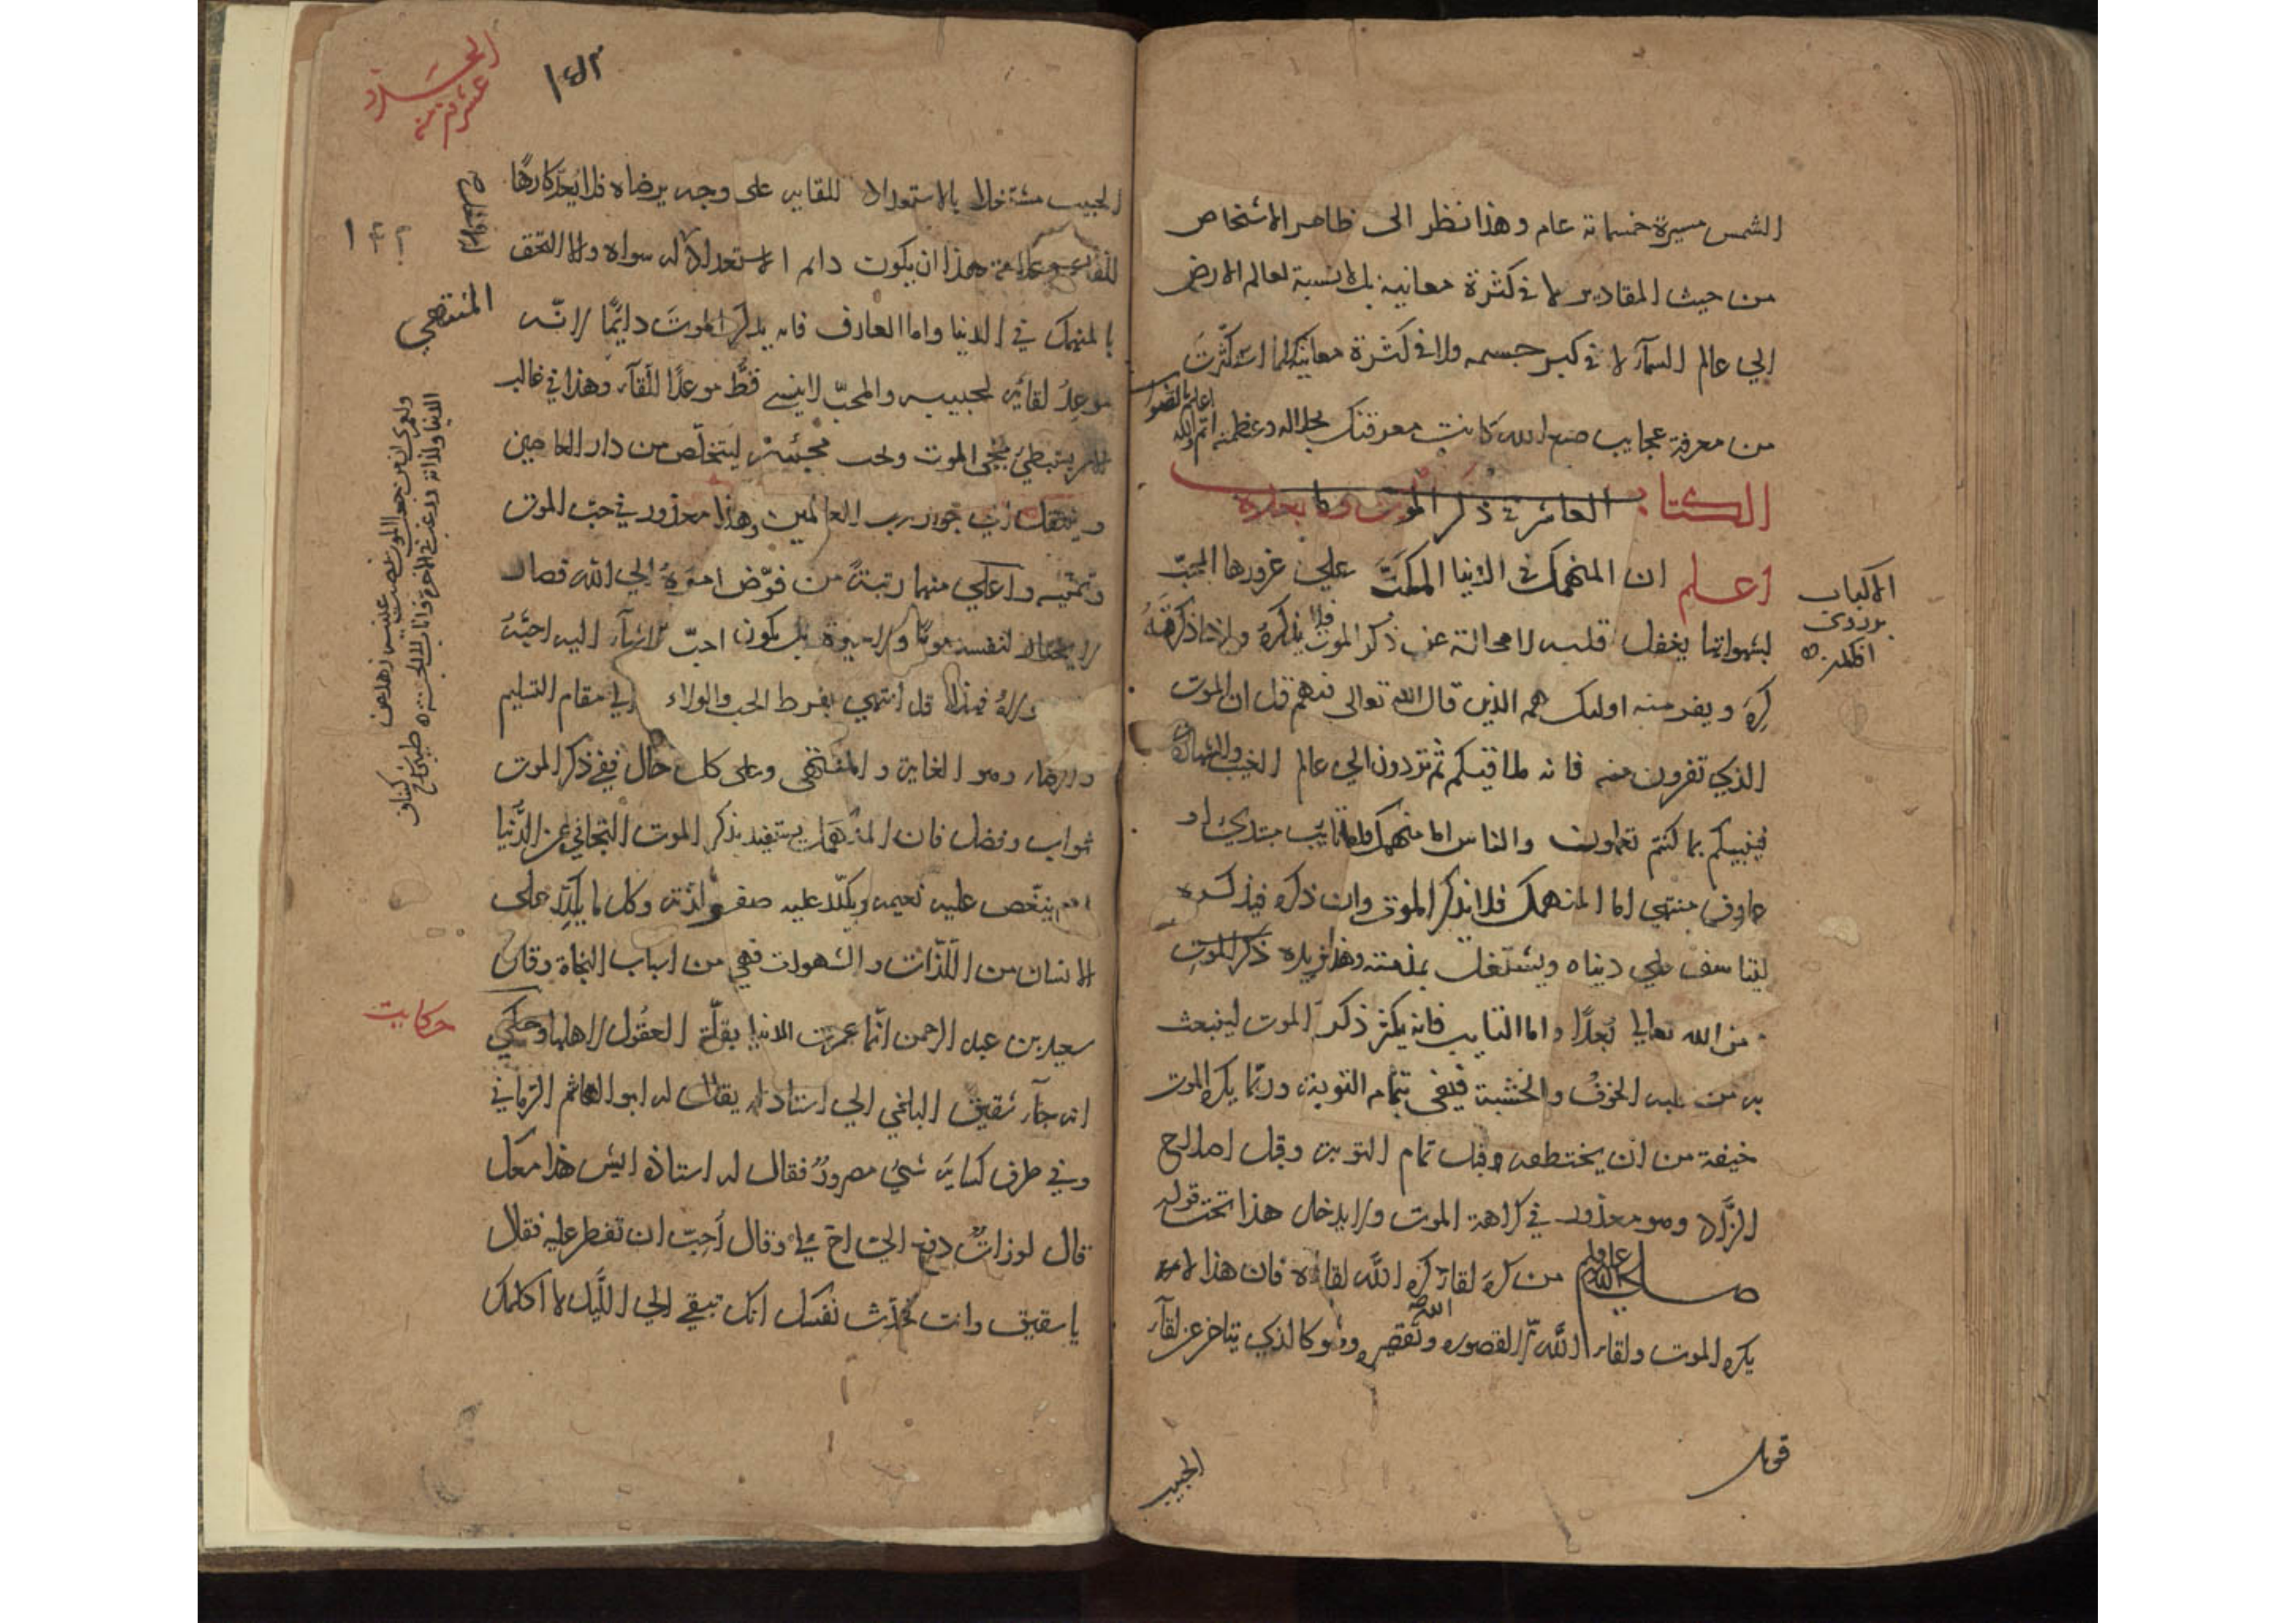 الشمس مسيرة خمسماىة عام وهذا نظر الى ظاهر الاشخاص
من حيث المقادير لا فى كثرة معانيه بل لا نسبة لعالم الارض
الي عالم السمآء لا فى كبر جسمه ولا فى كثرة معانيه كلما استكثرت
من معرفة عجايب صنع الله كانت معرفتك بجلاله وعظمته اتم والله
اعلم بالصواب
الكتاب العاشر فى ذكر الموت وما بعده
اعلم ان المنهمك فى الدنيا المكبّ علي غرورها المحبّ
لشهواتها يغفل قلبه لا محالة عن ذكر الموت فلا يذكره واذا ذكر به
كرِهَ ويفر منه اولىك هم الذين قال الله تعالى فيهم قل ان الموت
الذي تفرون منه فانه ملاقيكم ثم تردون الي عالم الغيب والشهادة
فينبيكم بما كنتم تعملون والناس اما منهمك واما تايب مبتدي او
عارف منتهي اما المنهمك فلا يذكر الموت وان ذكره فيذكره
ليتاسف على دنياه ويشتغل بمذمته وهذا يزيده ذكر الموت
من الله تعالي بُعدًا واما التايب فانه يكثر ذكر الموت لينبعث
به من قلبه الخوفُ والخشية فيفى بتمام التوبة وربّما يكره الموت
خيفة من ان يختطفه قبل تمام التوبة وقبل اصلاح
الزّاد وهو معذور فى كراهة الموت ولا يدخل هذا تحت قوله
صلى الله عليه وسلم من كره لقآء الله كره اللّه لقاءه فان هذا ليس
يكره الموت ولقاء اللّه لقصوره وتقصيره وهو كالذي يتاخر عن لقآء
الحبيب
الحبيب مشتغلا بالاستعداد للقايه على وجه يرضاه فلا يُعدّ كارهًا
للقائه وعلامة هذا ان يكون دائم الاستعداد له لا سواه والا التحق
بالمنهمك فى الدنيا واما العارف فانه يذكر الموتَ دائمًا لانّه
موعِدُ لقائه لحبيبه والمحبّ لا ينسي قطُّ موعدًا للّقآء وهذا فى غالب
الامر يستبطئ مجئ الموت ويحب مجيئه ليتخلّص من دار العاصين
وينتقل الي جوار رب العالمين وهذا معذور في حبّ الموت
وتمنّيه واعلي منهما رتبةً من فوّض امرهُ الي الله فصار
لا يختار لنفسه موتًا ولا حيوة بل يكون احبّ الاشيآء اليه احبّهُ
مولاهُ فهذا قد انتهي بفرط الحب والولاء الي مقام التسليم
والرضاء وهو الغاية والمنتهى وعلى كل حال ففي ذكر الموت
ثواب وفضل فان المنهمك يستفيد بذكر الموت التجافي عن الدّنيا
اذ ينغّص عليه نعيمه ويكدّر عليه صفو لذته وكل ما يكدّر على
الانسان من اللّذات والشهوات فهي من اسباب النجاة وقال
سعيد بن عبد الرحمن انّما عمرت الدنيا بقلّة العقُول لاهلها وحكي
انه جآء شقيق البلخي الي استاذ له يقال له ابو الهاشم الرّماني
وفي طرف كسايه شيُ مصرورٌ فقال له استاذه ايش هذا معك
قال لوزاتٌ دفع اليّ اخ لي وقال اُحبّ ان تفطر عليه فقال
يا شقيق وانت تحدّث نفسك انك تبقي الي اللّيل لا اكلمك
حكايت
المنتهي
١٤٢